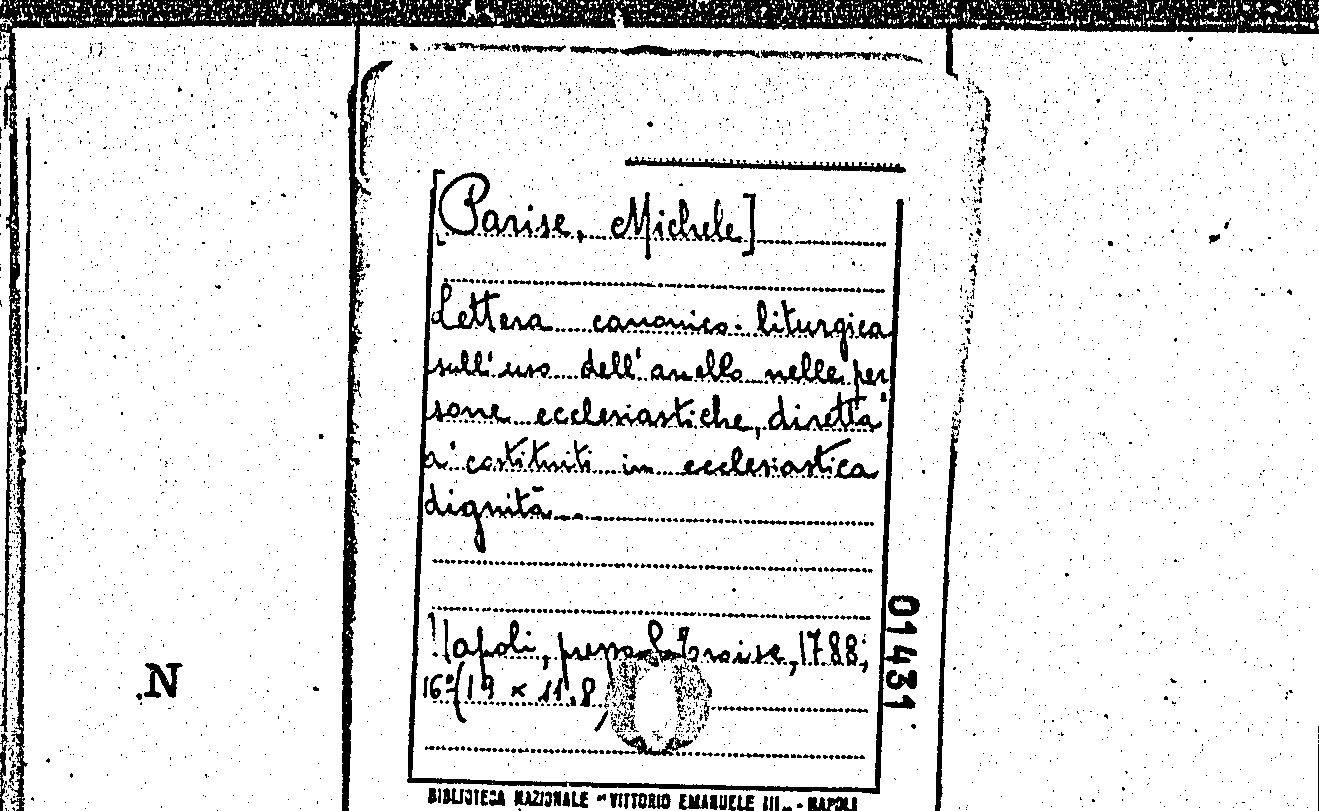 [Parise, Michele]
Lettera canonico-liturgica
sull'uso dell'anello nelle per
sone ecclesiastiche, diretta
a' costituiti in ecclesiastica
dignità
Napoli, presso Traise, 1788;
16° (19 x 11,8)
01431
.N
BIBLIOTECA NAZIONALE "VITTORIO EMANUELE III" - NAPOLI